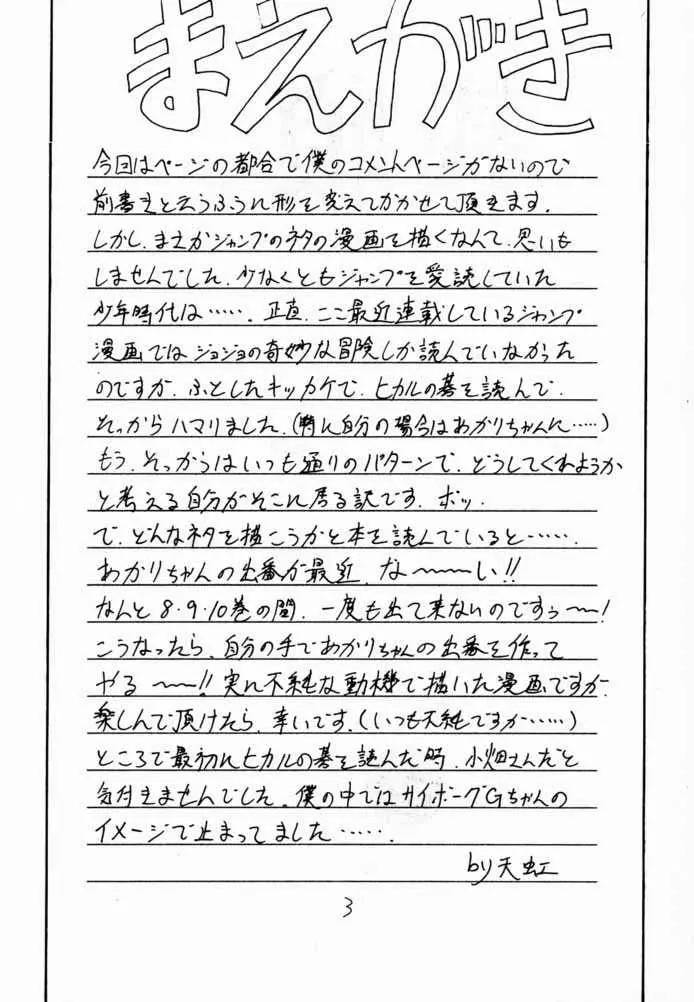 まえがき
今回はページの都合で僕のコメントページがないので
前書きと云うふうに形を変えてかかせて頂きます。
しかし、まさかジャンプのネタの漫画を描くなんて、思いも
しませんでした。少なくともジャンプを愛読していた
少年時代は……。正直、ここ最近連載しているジャンプ
漫画ではジョジョの奇妙な冒険しか読んでいなかった
のですが、ふとしたキッカケで、ヒカルの碁を読んで、
そっからハマリました。(特に自分の場合はあかりちゃんに……)
もう、そっからはいつも通りのパターンで、どうしてくれようか
と考える自分がそこに居る訳です。ポッ.
で、どんなネタを描こうかと本を読んでいると……。
あかりちゃんの出番が最近、な〜〜〜い!!
なんと8・9・10巻の間、一度も出て来ないのですぅ〜〜!
こうなったら、自分の手であかりちゃんの出番を作って
やる〜〜!!実に不純な動機で描いた漫画ですが、
楽しんで頂けたら、幸いです。(いつも不純ですが……)
ところで最初にヒカルの碁を読んだ時、小畑さんだと
気付きませんでした。僕の中ではサイボーグGちゃんの
イメージで止まってました……。
by天虹
3